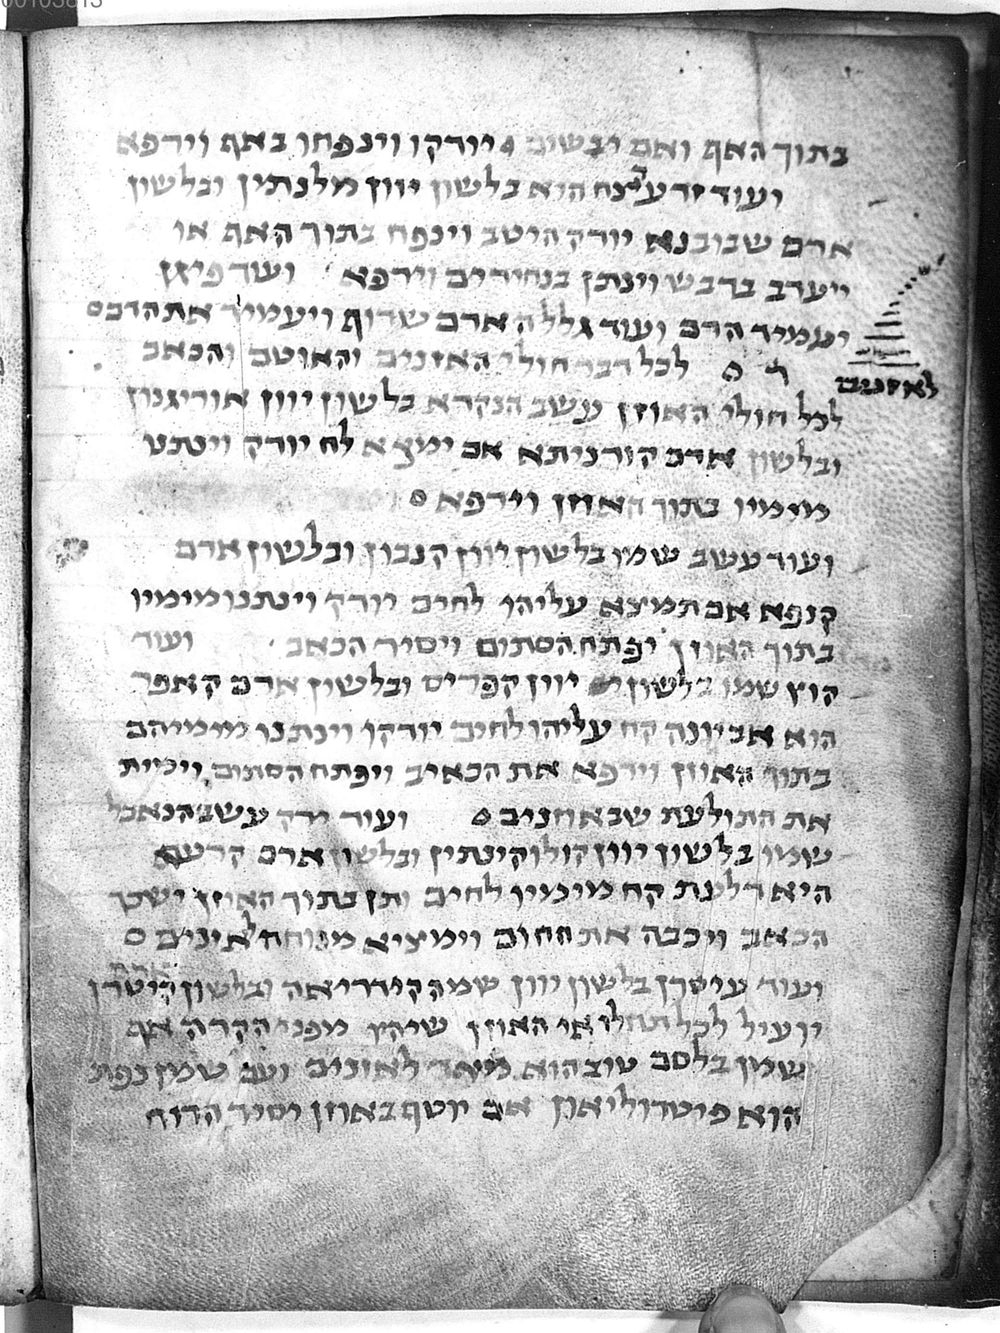 בתוך האף ואם יבשים יורקו וינפחו באף וירפא
ועוד זרע הוא בלשון יוון מלנתין ובלשון
ארם שבובנא יורק היטב וינפח בתוך האף או
ייערב בדבש וינתן בנחירים וירפא ועוד פיגן
יעמיד הדם ועוד גללה ארם שרוף ויעמיד את הדם
לכל דבר חולי האזנים והאוטם והכאב
לאזנים
לכל חולי האוזן עשב הנקרא בלשון יוון אוריגנון
ובלשון ארם קורניתא אם ימצא לח יורק וינתנו
מימיו בתוך האוזן וירפא
ועוד עשב שמו בלשון יוון קנבוץ ובלשון ארם
קנפא אם תמצא עליהו לחים יורק וינתנו מימיו
בתוך האוזן יפתח הסתום ויסיר הכאב ועוד
קוץ שמו בלשון יוון קפריס ובלשון ארם קאפר
הוא אביונה קח עליהו לחים יורקו וינתנו מימיהם
בתוך האוזן וירפא את הכאיב ויפתח הסתום וימית
את התולעת שבאוזנים ועוד ירק עשב הנאכל
שמו בלשון יוון קולוקינתין ובלשון ארם קרעא
היא דלעת קח מימיו לחים ותן בתוך האוזן ישכך
הכאב ויכבה את החום וימציא מנוחה לאזנים
ועוד עיטרן בלשון יוון שמה קידריאה ובלשון קיטרן
יועיל לכל האוזן מפני הקרה אם
שמן בלסם טוב הוא מאד לאזנים ועם שמן נפת
הוא אם יוטף באוזן יסיר הרוח